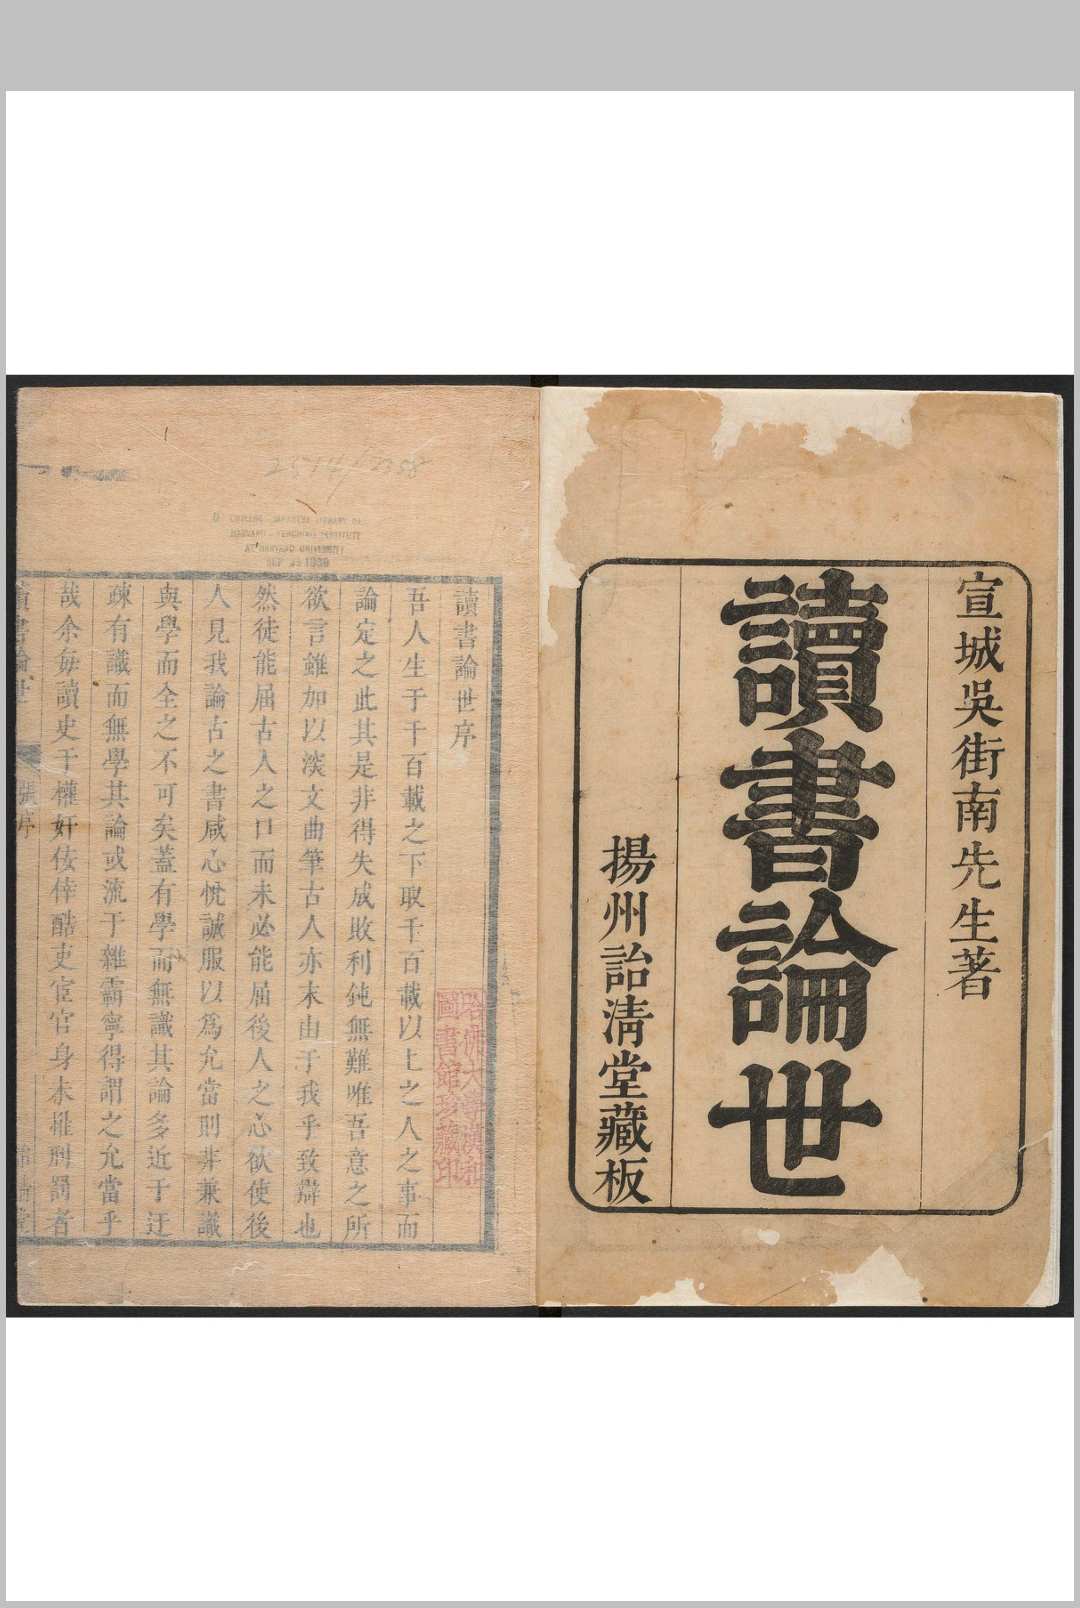 宣城吳街南先生著
讀書論世
揚州詒清堂藏板
讀書論世序
吾人生于千百載之下取千百載以上之人之事而
論定之此其是非得失成敗利鈍無難唯吾意之所
欲言雖加以淡文曲筆古人亦末由于我乎致辯也
然徒能屈古人之口而未必能屈後人之心欲使後
人見我論古之書咸心悅誠服以為允當則非兼識
與學而全之不可矣蓋有學而無識其論多近于迂
疎有識而無學其論或流于雜霸寧得謂之允當乎
哉余每讀史于權奸佞倖酷吏宦官身未摧刑罰者
讀書論世
張序
哈佛大學漢和
圖書館珍藏印
AT HARVARD UNIVERSITY